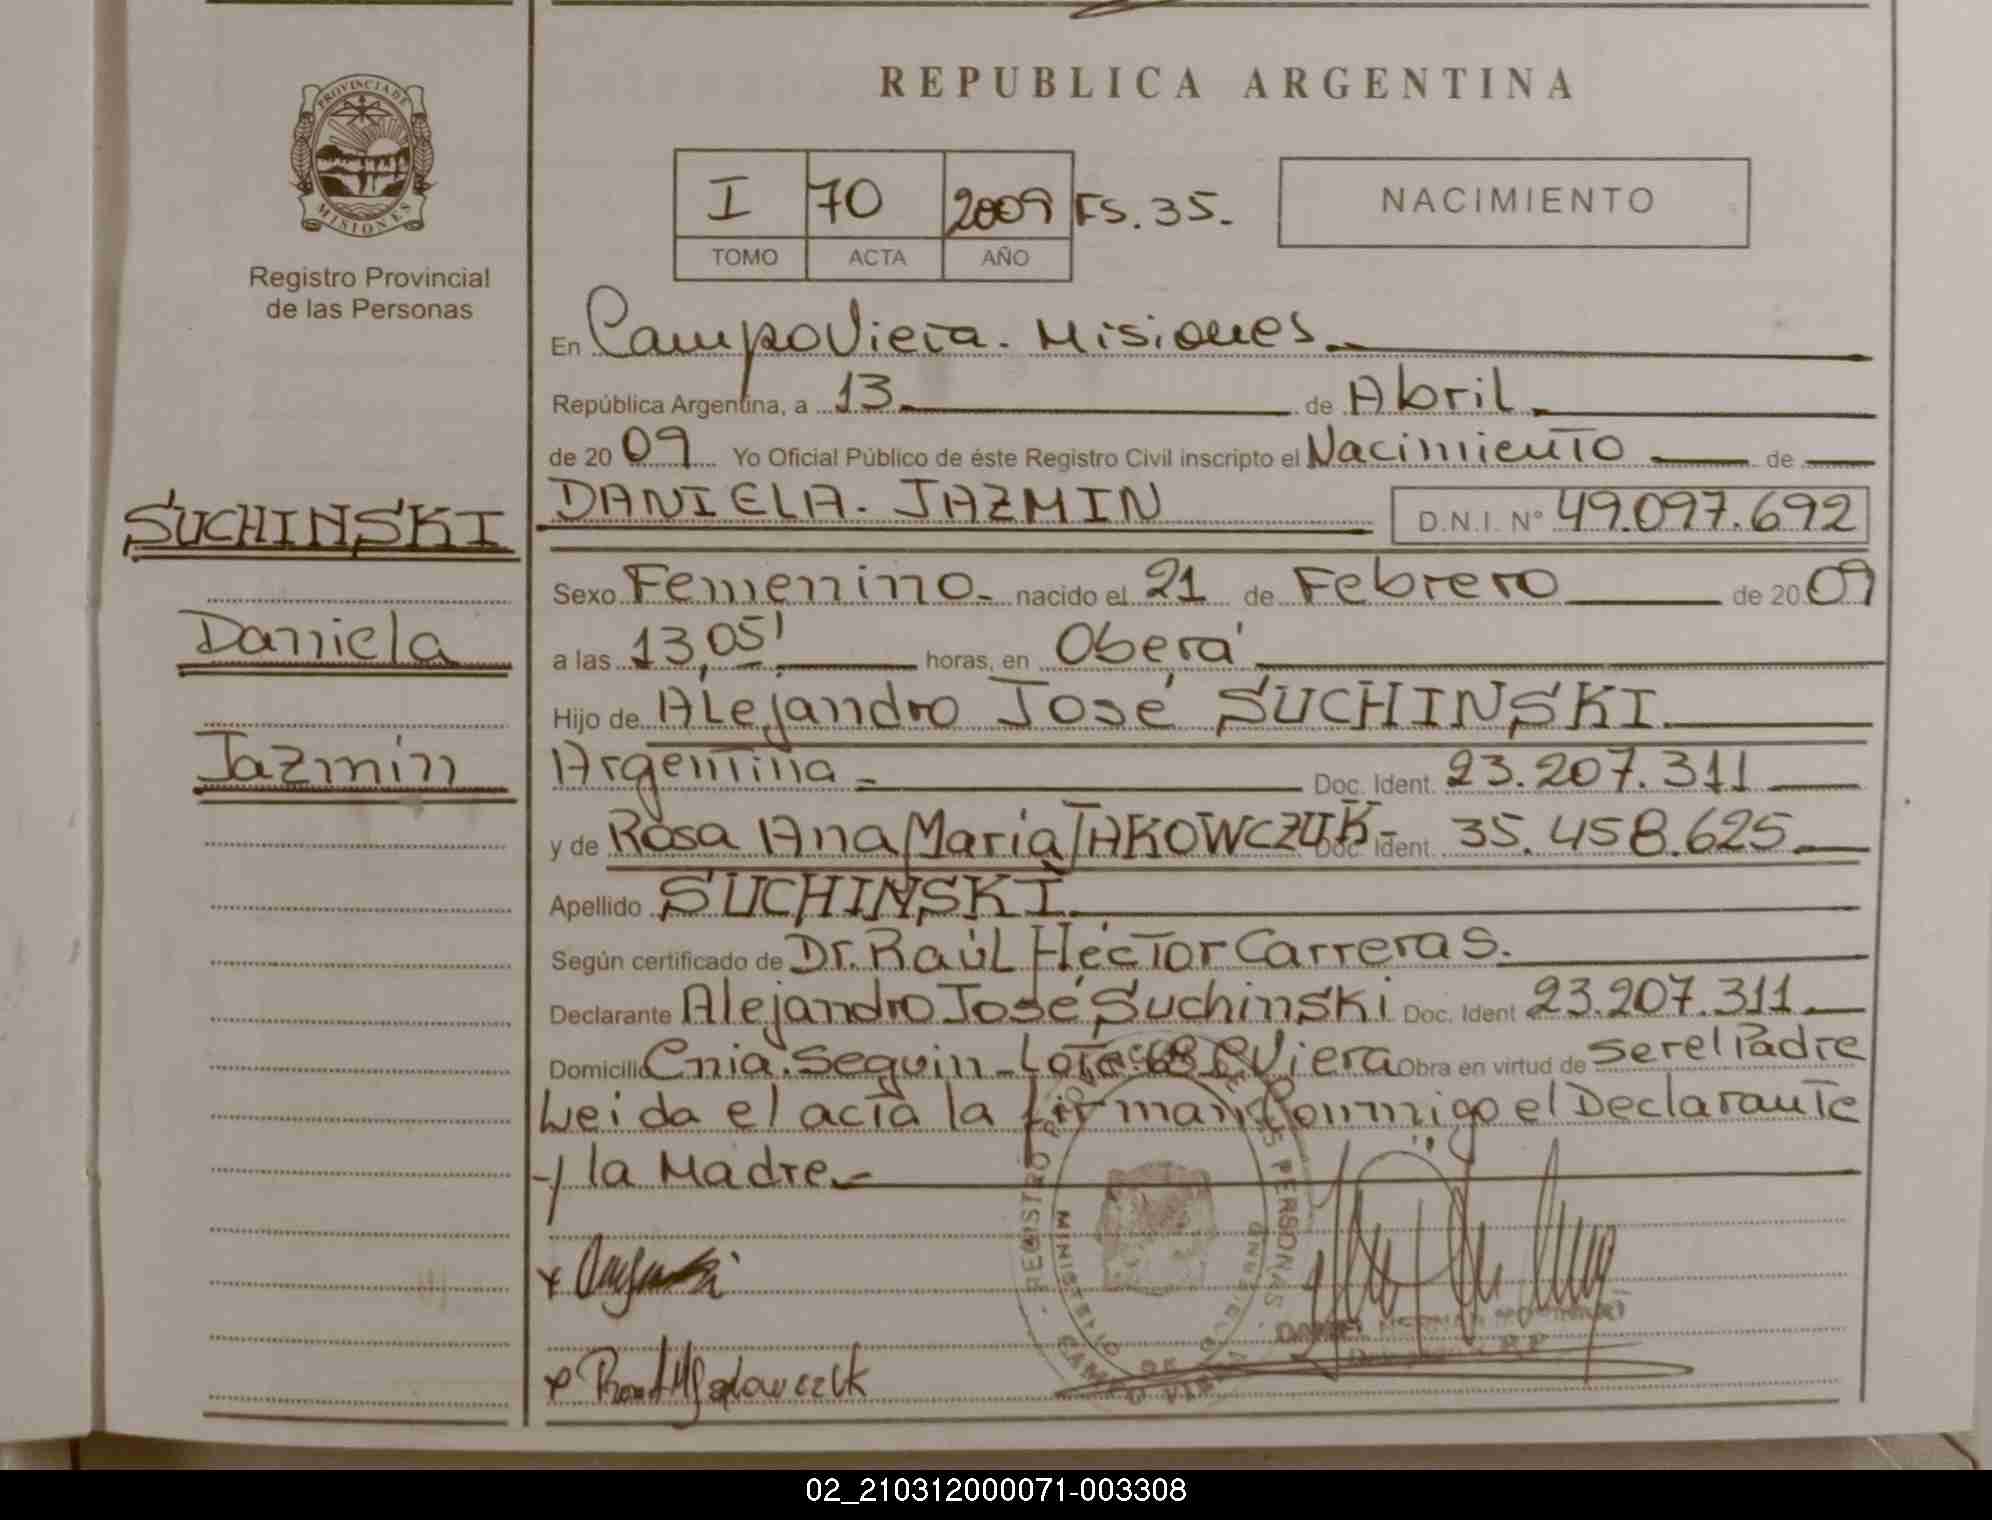 REPUBLICA ARGENTINA
PROVINCIA DE
MISIONES
Registro Provincial
de las Personas
I 70 2009 FS. 35.
TOMO ACTA AÑO
NACIMIENTO
En Campo Viera. Misiones
República Argentina, a 13 de Abril
de 20 09 Yo Oficial Público de éste Registro Civil inscripto el Nacimiento de
SUCHINSKI
Daniela
Jazmín
DANIELA. JAZMIN D.N.I. Nº 49.097.692
Sexo Femenino nacido el 21 de Febrero de 2009
a las 13,05' horas, en Oberá
Hijo de Alejandro José SUCHINSKI
Argentina Doc. Ident. 23.207.311
y de Rosa Ana María JAKOWCZUK Doc. Ident. 35.458.625
Apellido SUCHINSKI
Según certificado de Dr. Raúl Héctor Carreras.
Declarante Alejandro José Suchinski Doc. Ident 23.207.311
Domicilio Cnia. Seguin - Lote 68 C. Viera Obra en virtud de ser el Padre
Leida el acta la firman Conmigo el Declarante
y la Madre
REGISTRO PERSONAS
CAMPO VIERA
02_210312000071-003308